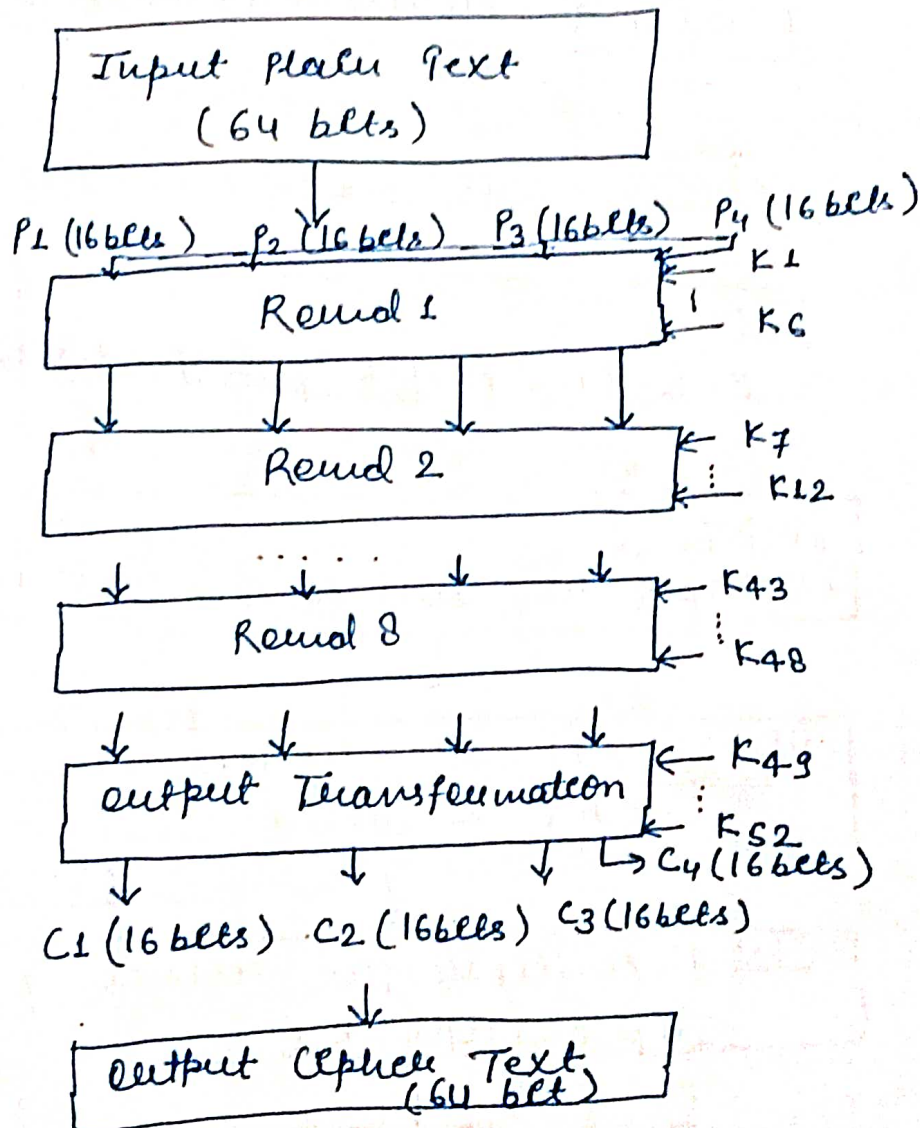 Input Plain Text
(64 bits)
P1 (16 bits) P2 (16 bits) P3 (16 bits) P4 (16 bits)
K1
Round 1
K6
K7
Round 2
K12
K43
Round 8
K48
K49
Output Transformation
K52
C4 (16 bits)
C1 (16 bits) C2 (16 bits) C3 (16 bits)
Output Cipher Text
(64 bit)